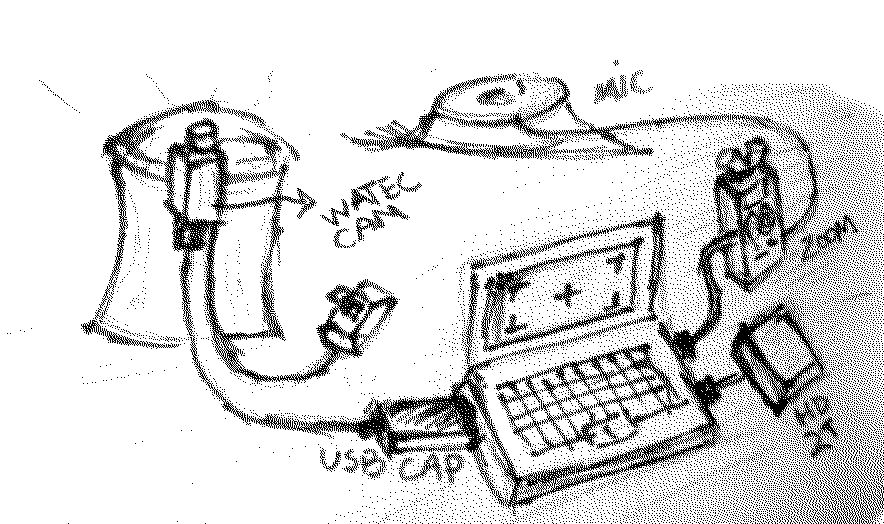 MIC
WATEC
CAM
ZOOM
USB CAP